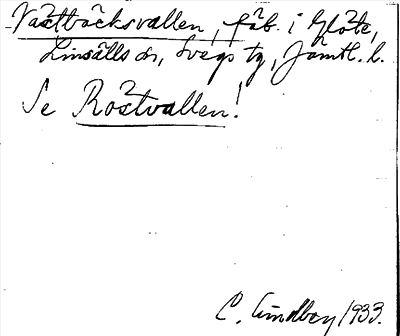 Västbäcksvallen, fäb. i Glöte,
Linsälls sn, Svegs tg, Jämtl. l.
Se Rostvallen!
C. Lindberg 1933.